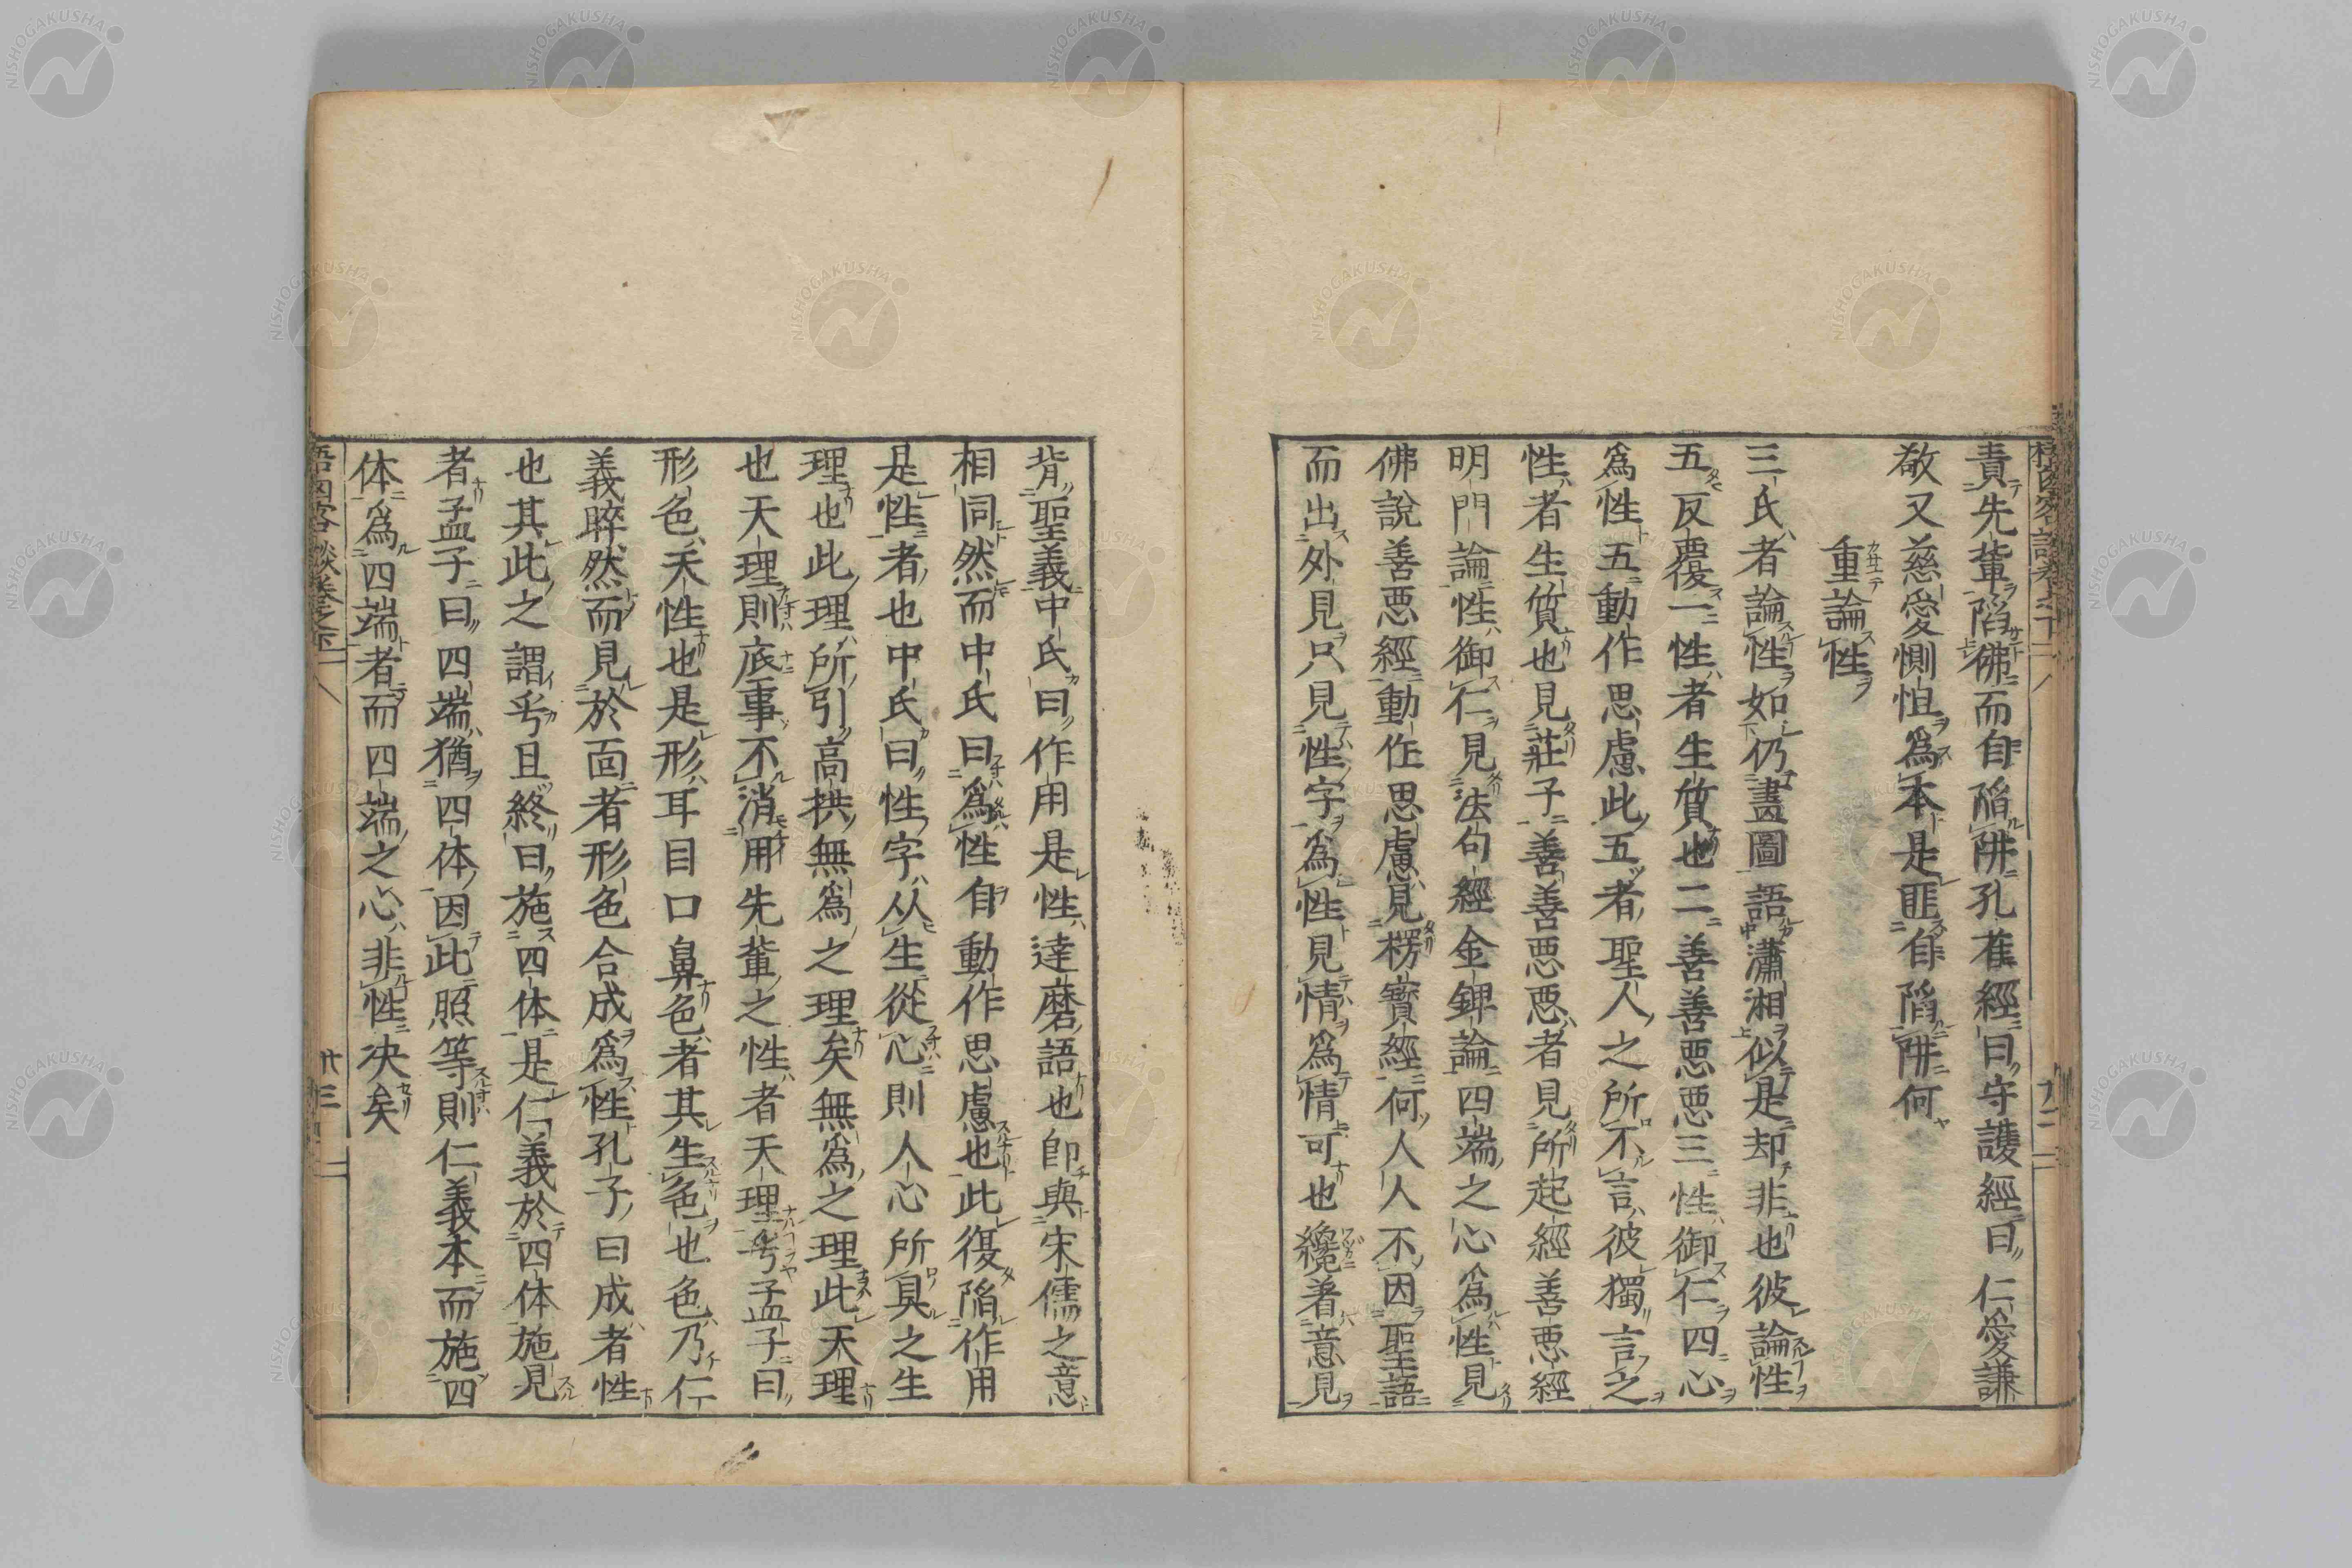 責先輩陷佛而自陷阱孔雀經曰守護經曰仁愛謙
敬又慈愛惻怛爲本是匪自陷阱何
重論性
三氏者論性如仍畫圖語瀟湘似是却非也彼論性
五反覆一性者生質也二善善惡惡三性御仁四心
爲性五動作思慮此五者聖人之所不言彼獨言之
性者生質也見莊子善善惡惡者見所起經善惡經
明門論性御仁見法句經金錍論四端之心爲性見
佛說善惡經動作思慮見楞寳經何人人不因聖語
而出外見只見性字爲性見情爲情可也纔著意見
背聖義中氏曰作用是性達磨語也卽與宋儒之意
相同然而中氏曰爲性自動作思慮也此復陷作用
是性者也中氏曰性字从生從心則人心所具之生
理也此理所引高拱無爲之理矣無爲之理此天理
也天理則底事不消用先輩之性者天理乎孟子曰
形色天性也是形耳目口鼻色者其生色也色乃仁
義睟然而見於面者形色合成爲性孔子曰成者性
也其此之謂乎且終曰施四体是仁義於四体施見
者孟子曰四端猶四体因此照等則仁義本而施四
体爲四端者而四端之心非性决矣
NISHOGAKUSHA